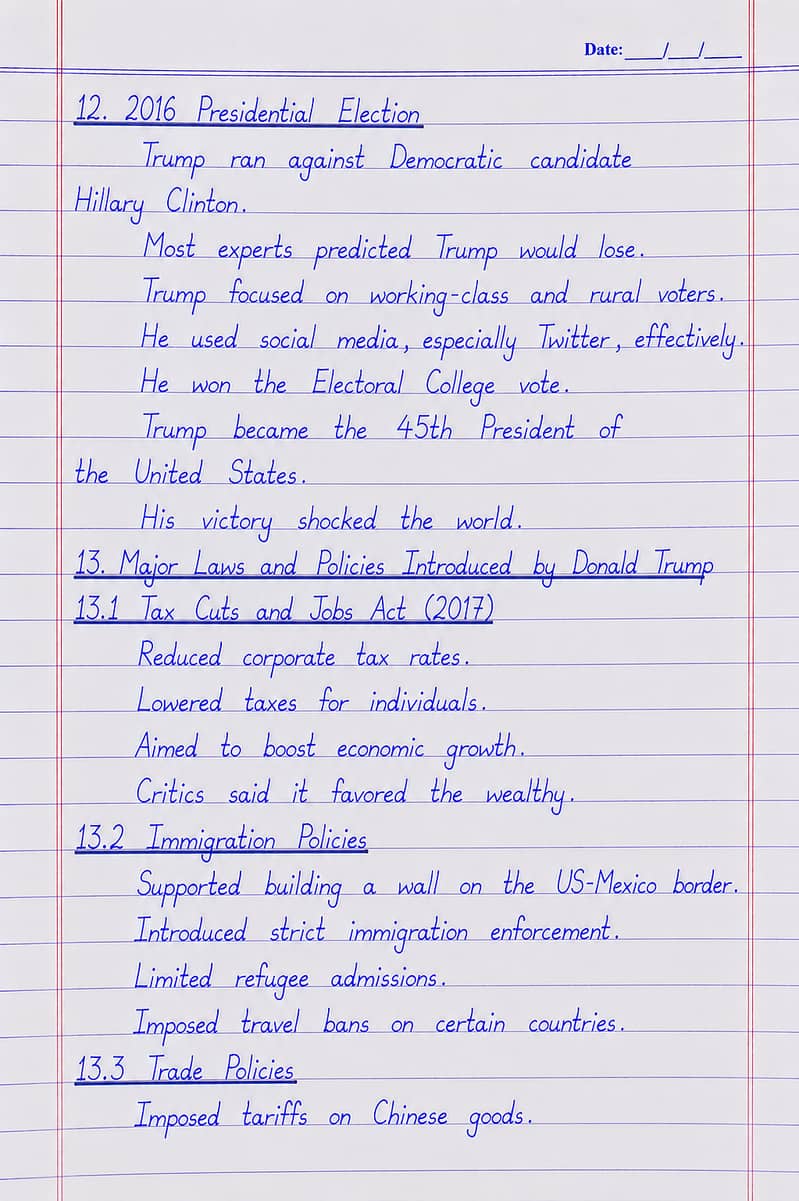 Date: ____/___/____
12. 2016 Presidential Election
Trump ran against Democratic candidate
Hillary Clinton.
Most experts predicted Trump would lose.
Trump focused on working-class and rural voters.
He used social media, especially Twitter, effectively.
He won the Electoral College vote.
Trump became the 45th President of
the United States.
His victory shocked the world.
13. Major Laws and Policies Introduced by Donald Trump
13.1 Tax Cuts and Jobs Act (2017)
Reduced corporate tax rates.
Lowered taxes for individuals.
Aimed to boost economic growth.
Critics said it favored the wealthy.
13.2 Immigration Policies
Supported building a wall on the US-Mexico border.
Introduced strict immigration enforcement.
Limited refugee admissions.
Imposed travel bans on certain countries.
13.3 Trade Policies
Imposed tariffs on Chinese goods.